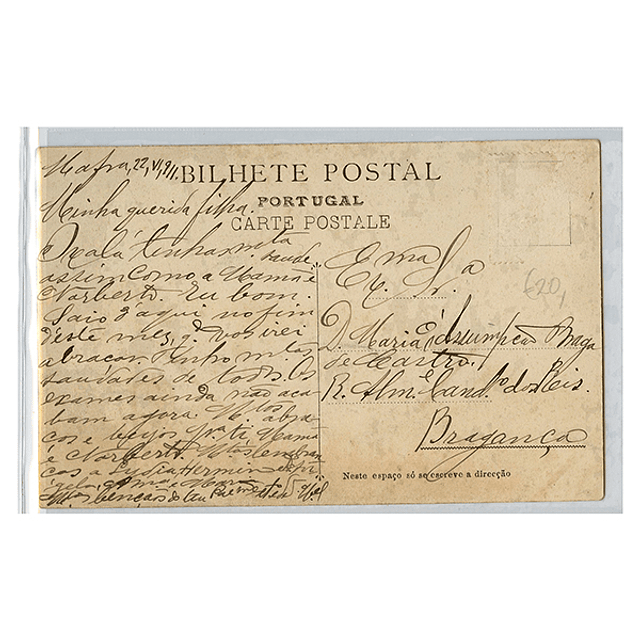 Mafra, 22, VI, 911.
BILHETE POSTAL
PORTUGAL
CARTE POSTALE
Minha querida filha.
Oxalá tenhas mta saude
assim como a Mamã e
Norberto. Eu bom.
Saio d'aqui no fim
deste mez, q. vos irei
abraçar. Tenho mtas
saudades de todos. Os
exames ainda não aca-
bam agora. Mtos abra-
ços e beijos pa ti, Mamã
e Norberto. Mtas lembran-
ças a Lydia Hermin
Mtas bençãos do teu
Exma Sra
D. Maria d'Assumpção Braga
de Castro.
R. Alm.e Cand.o dos Reis.
Bragança
620,
Neste espaço só se escreve a direcção